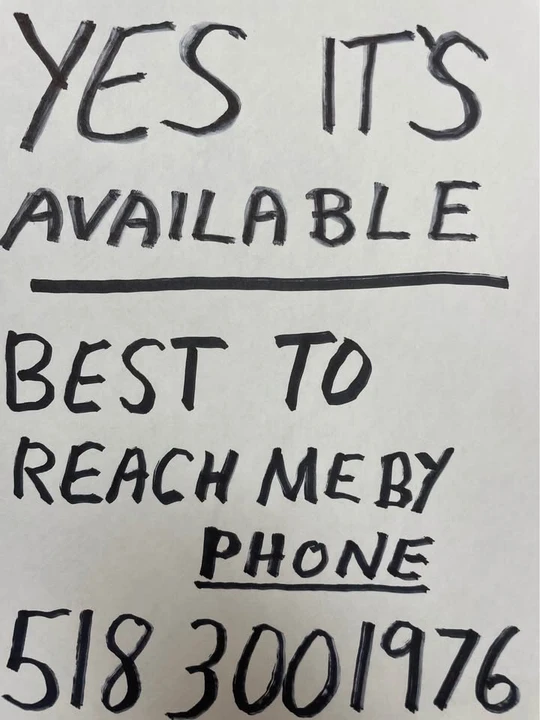 YES IT'S
AVAILABLE
BEST TO
REACH ME BY
PHONE
518 3001976